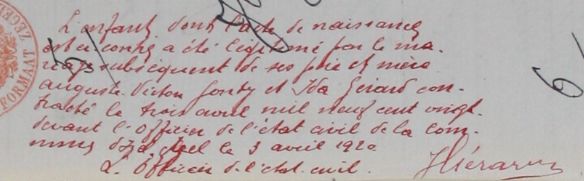 L'enfant dont l'acte de naissance
est ci contre a été légitimé par le ma-
riage subséquent de ses père et mère
Auguste Victor Gonty et Ida Gérard con-
tracté le trois avril mil neuf cent vingt
devant l'Officier de l'état civil de la com-
mune d'      le 3 avril 1920
L'Officier de l'état-civil.
FORMAAT ZEGEL